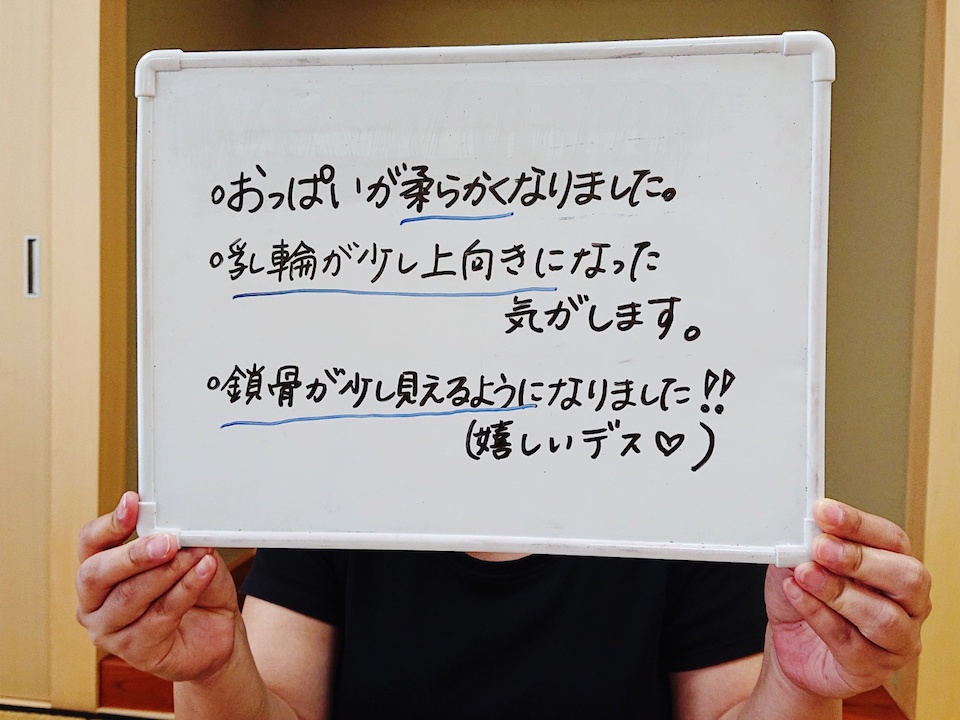 ○おっぱいが柔らかくなりました。
○乳輪が少し上向きになった
気がします。
○鎖骨が少し見えるようになりました!!
(嬉しいデス♡)